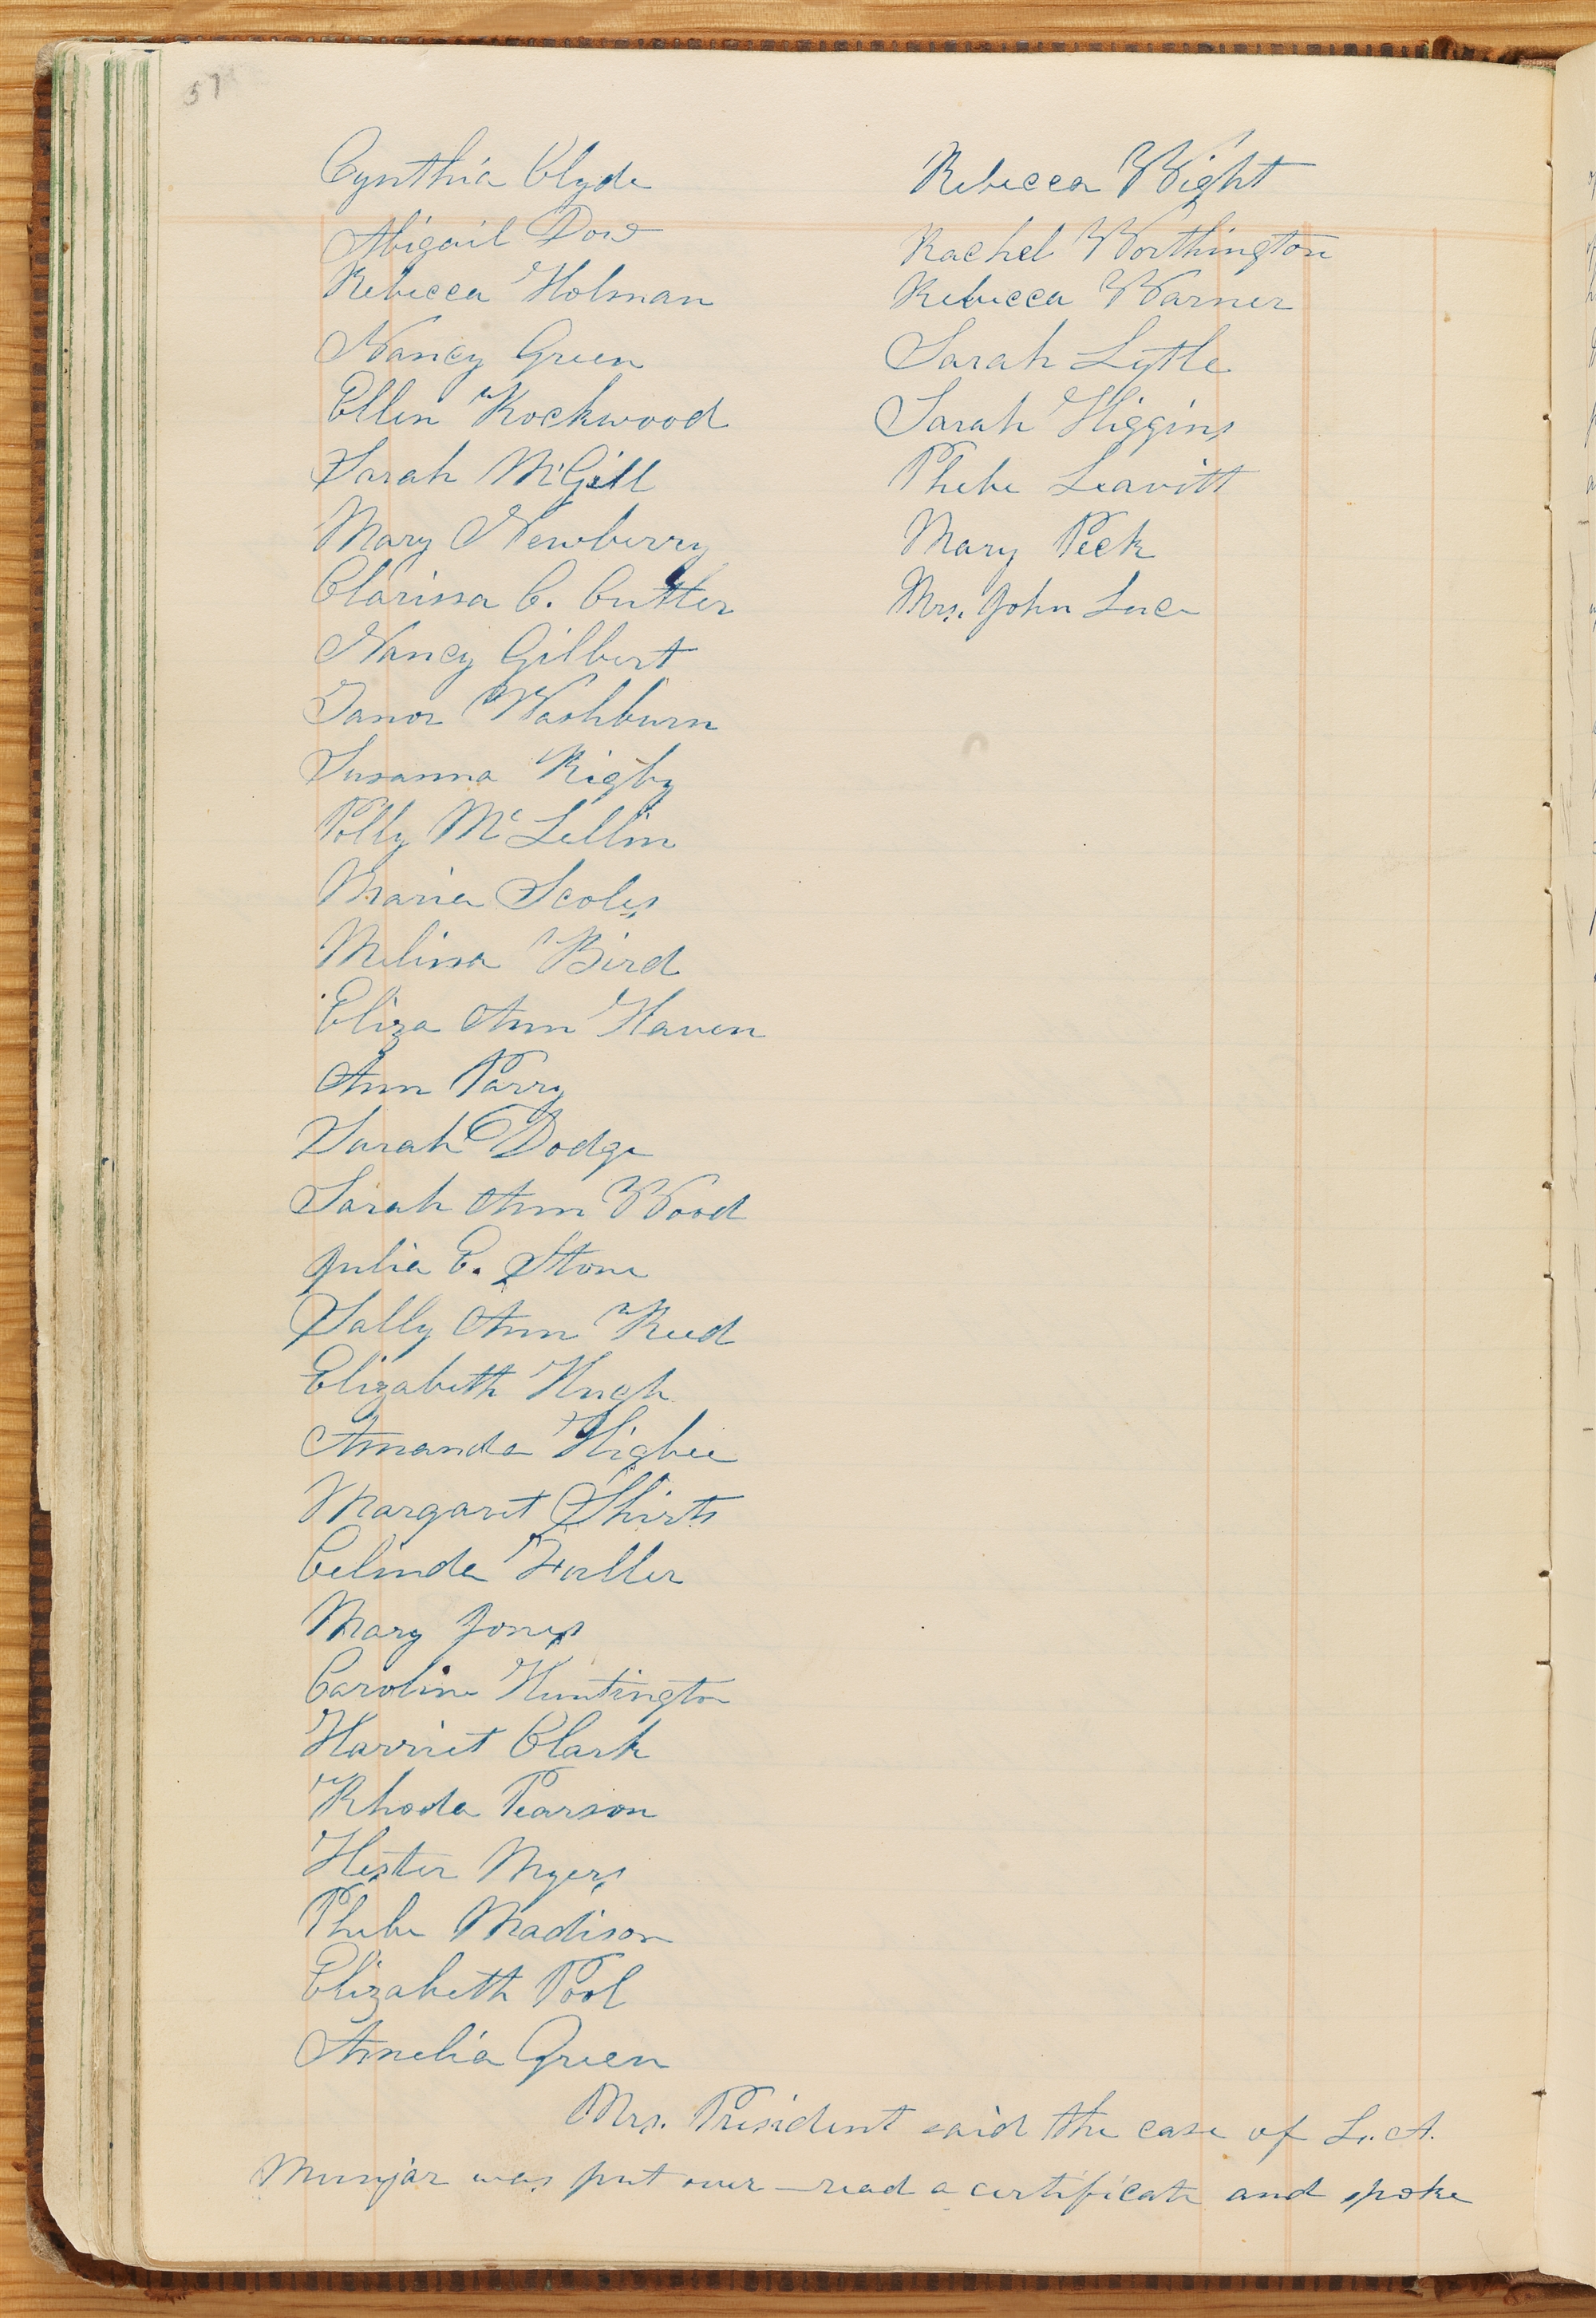 57
Cynthia Clyde
Abigail Dow
Rebecca Holman
Nancy Green
Ellen Rockwood
Sarah McGill
Mary Newberry
Clarissa C. Cutler
Nancy Gilbert
Tamor Washburn
Susanna Rigby
Polly Mc Lellin
Maria Scoles
Melissa Bird
Eliza Ann Haven
Ann Parry
Sarah Dodge
Sarah Ann Wood
Julia E. Stone
Sally Ann Reed
Elizabeth Hugh
Amanda Higbee
Margaret Shirts
Celinda Fuller
Mary Jones
Caroline Huntington
Harriet Clark
Rhoda Pearson
Hester Myers
Phebe Madison
Elizabeth Pool
Amelia Green
Rebecca Wight
Rachel Worthington
Rebecca Warner
Sarah Lytle
Sarah Higgins
Phebe Leavitt
Mary Peck
Mrs. John Luce
Mrs. President said the case of L. A.
Munjar was put over — read a certificate and spoke